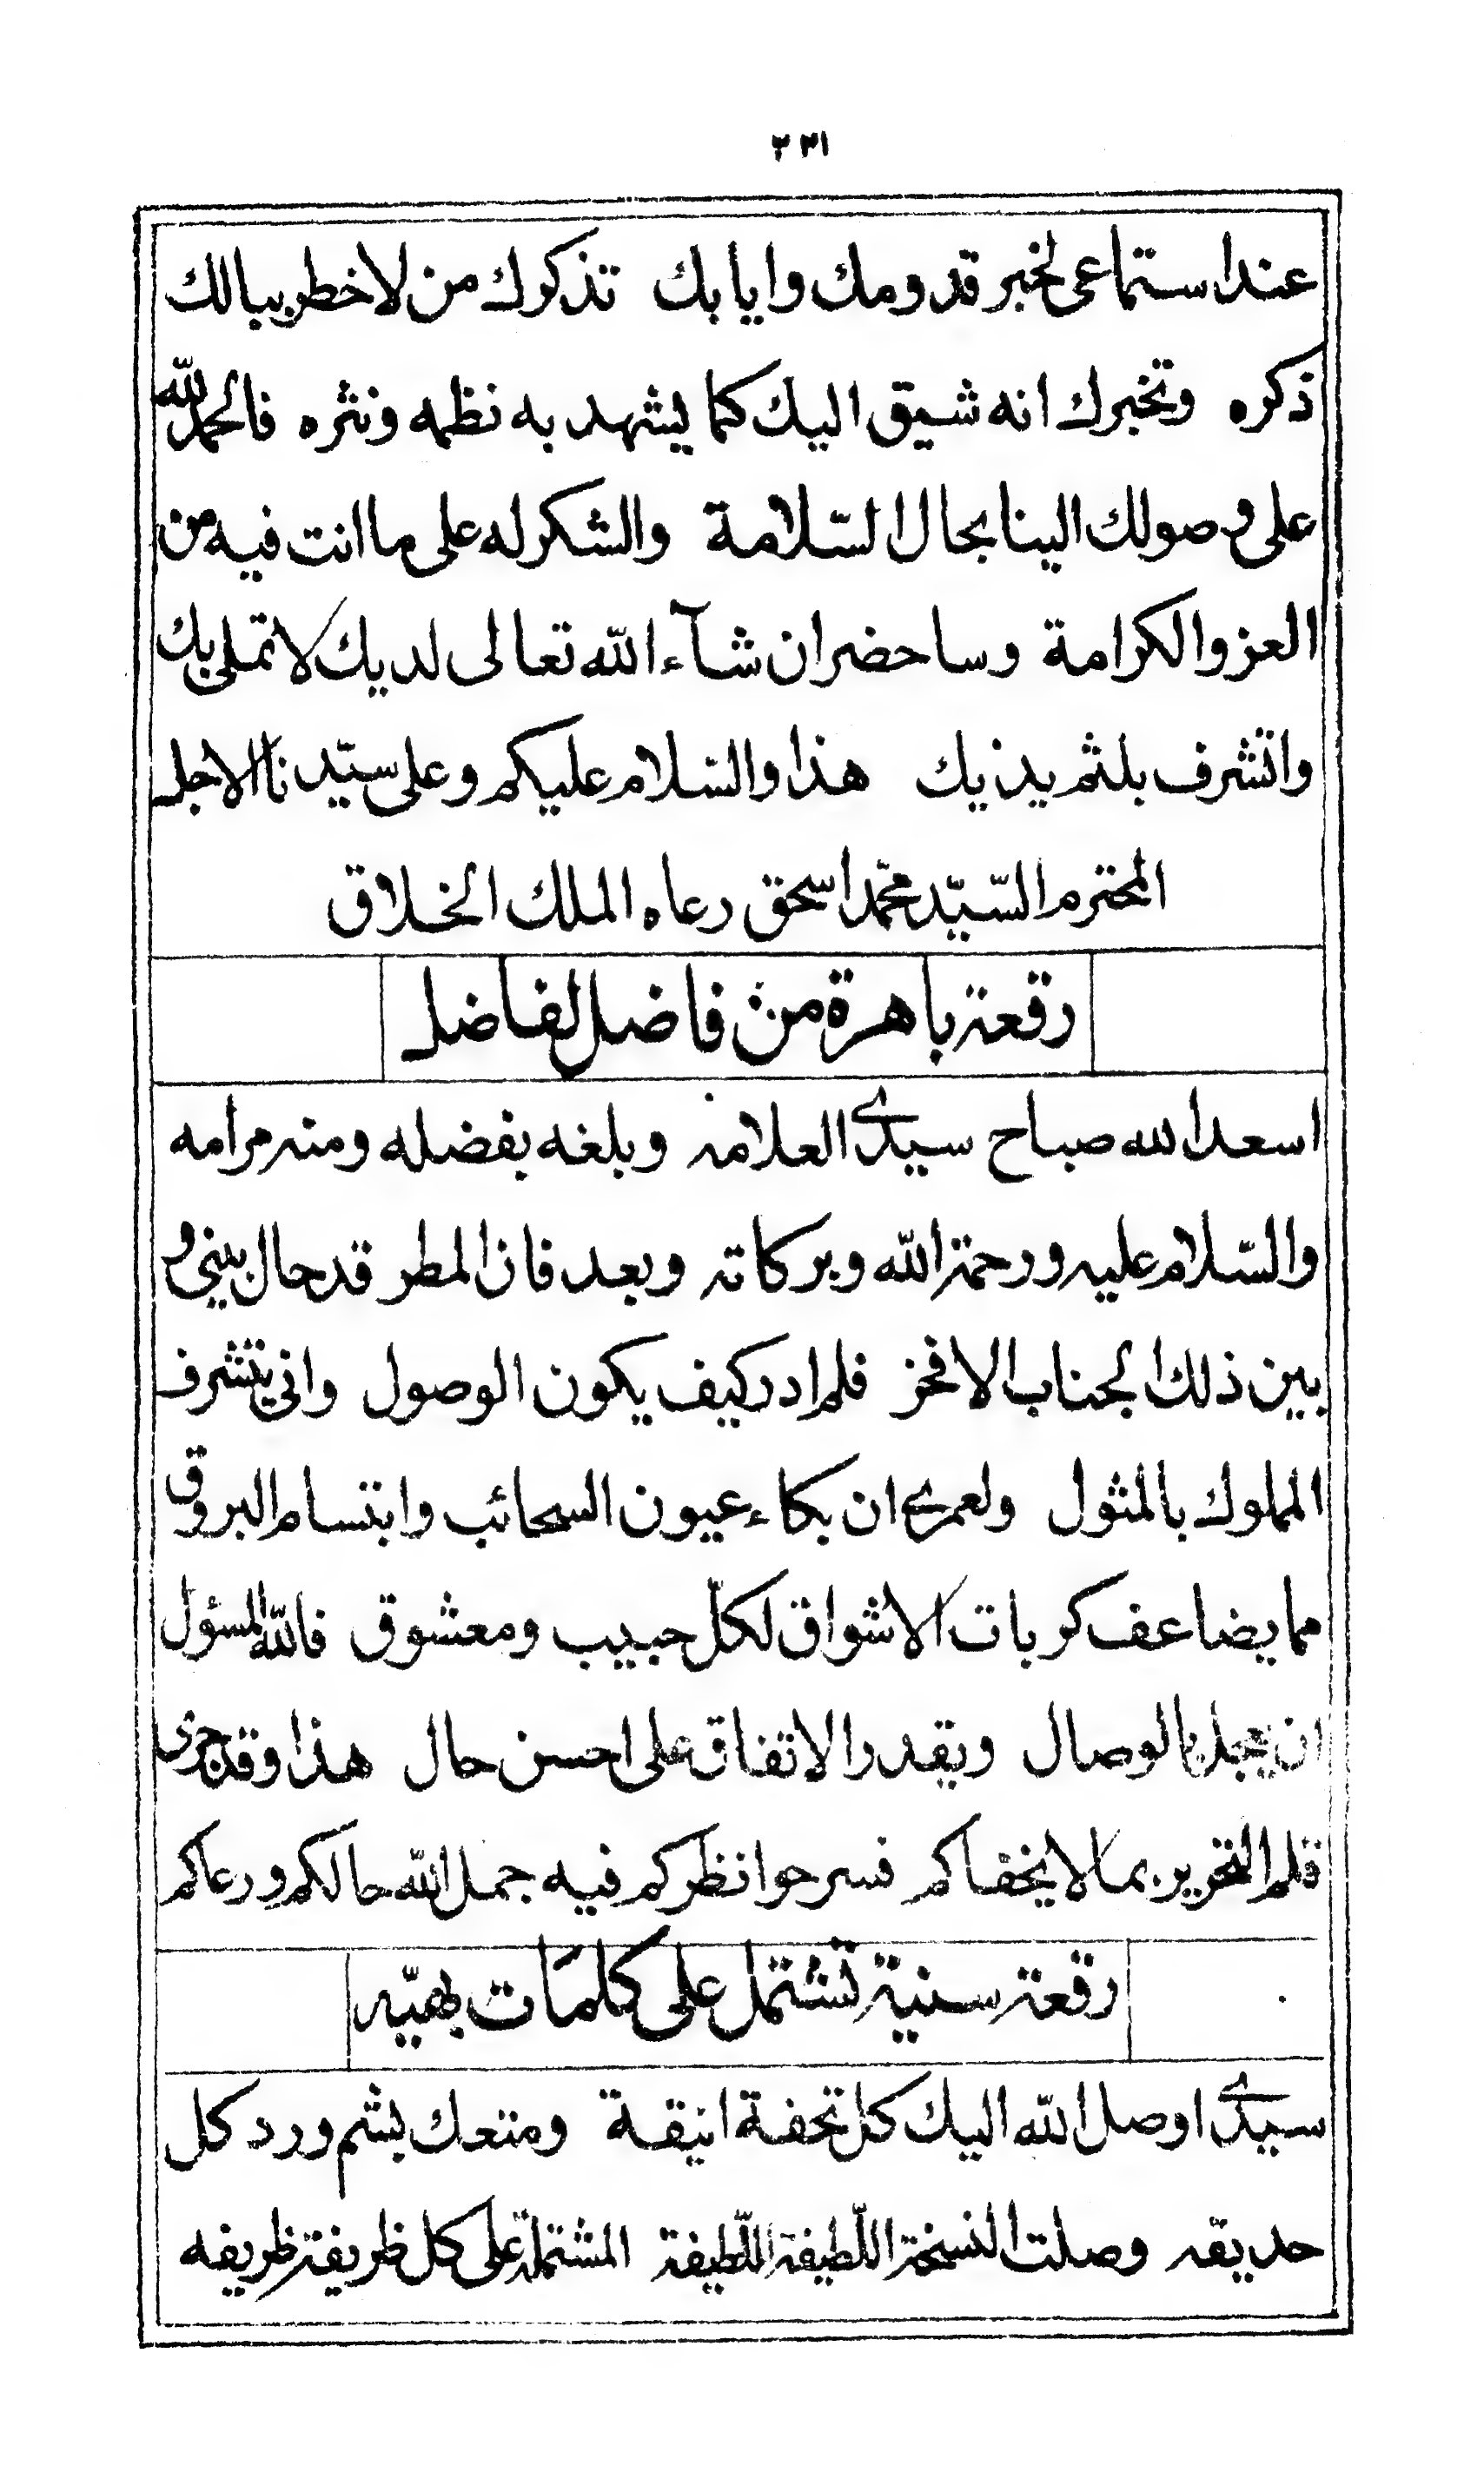 ٢٣١
عند استماعى لخبر قدومك وايابك تذكرك من لاخطر ببالك
ذكره وتخبرك انه شيق اليك كما يشهد به نظمه ونثره فالحمد لله
على وصولك الينا بحال السّلامة والشكر له على ما انت فيه من
العز والكرامة وساحضر ان شآء الله تعالى لديك لاتملى بك
واتشرف بلثم يديك هذا والسّلام عليكم وعلى سيّدنا الاجل
المحترم السّيّد محمّد اسحق رعاه الملك الخلاق
رقعة باهرة من فاضل لفاضل
اسعد الله صباح سيدى العلامة وبلغه بفضله ومنه مرامه
والسّلام عليه ورحمة الله وبركاته وبعد فان المطر قد حال بينى و
بين ذلك الجناب الافخر فلم ادر كيف يكون الوصول وانى يتشرف
المملوك بالمثول ولعمرى ان بكاء عيون السحائب وابتسام البروق
مما يضاعف كربات الاشواق لكل حبيب ومعشوق فالله المسؤل
ان يعجل بالوصال ويقدر الاتفاق على احسن حال هذا وقد جرى
قلم التحرير بما لا يخفاكم فسرحوا نظركم فيه جمل الله حالكم ورعاكم
رقعة سنية تشتمل على كلمات بهيّه
سيدى اوصل الله اليك كل تحفة انيقة ومتعك بشم ورد كل
حديقه وصلت النسخة اللطيفة اللّطيفة المشتملة على كل ظريفة ظريفه